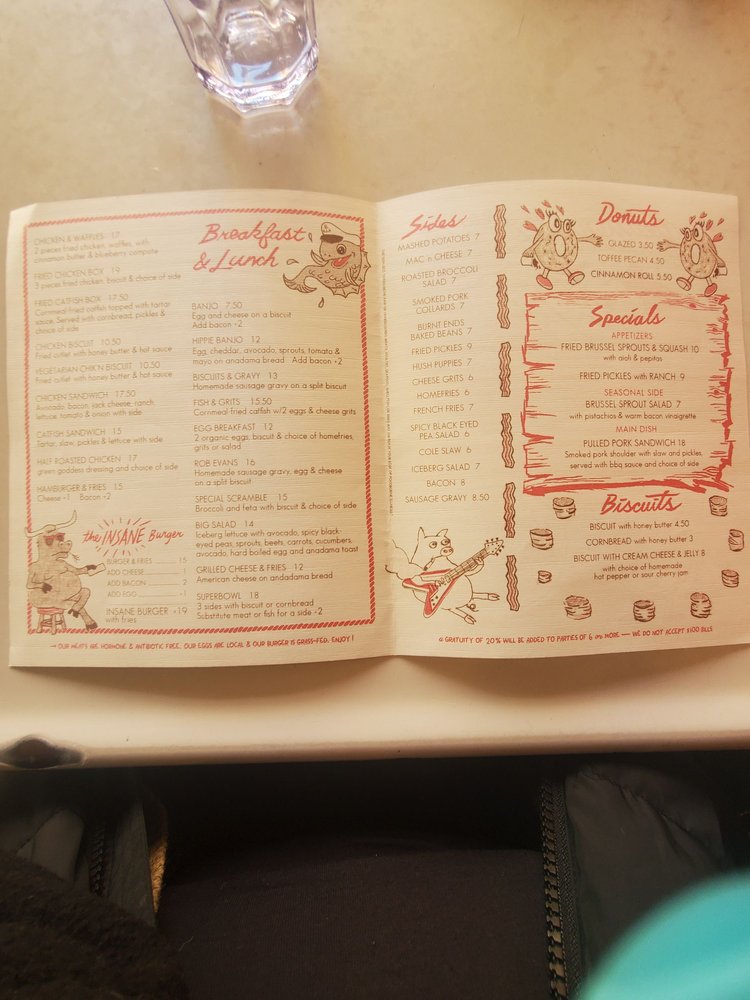 Breakfast
& Lunch
CHICKEN & WAFFLES 17
2 pieces fried chicken, waffles, with
cinnamon butter & blueberry compote
FRIED CHICKEN BOX 19
3 pieces fried chicken, biscuit & choice of side
FRIED CATFISH BOX 17.50
Cornmeal fried catfish topped with tartar
sauce. Served with cornbread, pickles &
choice of side
CHICKEN BISCUIT 10.50
Fried cutlet with honey butter & hot sauce
VEGETARIAN CHIK'N BISCUIT 10.50
Fried cutlet with honey butter & hot sauce
CHICKEN SANDWICH 17.50
Avocado, bacon, jack cheese, ranch,
lettuce, tomato & onion with side
CATFISH SANDWICH 15
Tartar, slaw, pickles & lettuce with side
HALF ROASTED CHICKEN 17
green goddess dressing and choice of side
HAMBURGER & FRIES 15
Cheese +1 Bacon +2
the INSANE Burger
BURGER & FRIES 15
ADD CHEESE
ADD BACON 2
ADD EGG
INSANE BURGER +19
with fries
BANJO 7.50
Egg and cheese on a biscuit
Add bacon +2
HIPPIE BANJO 12
Egg, cheddar, avocado, sprouts, tomato &
mayo on anadama bread Add bacon +2
BISCUITS & GRAVY 13
Homemade sausage gravy on a split biscuit
FISH & GRITS 15.50
Cornmeal fried catfish w/2 eggs & cheese grits
EGG BREAKFAST 12
2 organic eggs, biscuit & choice of homefries,
grits or salad
ROB EVANS 16
Homemade sausage gravy, egg & cheese
on a split biscuit
SPECIAL SCRAMBLE 15
Broccoli and feta with biscuit & choice of side
BIG SALAD 14
Iceberg lettuce with avocado, spicy black
eyed peas, sprouts, beets, carrots, cucumbers,
avocado, hard boiled egg and anadama toast
GRILLED CHEESE & FRIES 12
American cheese on andadama bread
SUPERBOWL 18
3 sides with biscuit or cornbread
Substitute meat or fish for a side +2
OUR MEATS ARE HORMONE & ANTIBIOTIC FREE. OUR EGGS ARE LOCAL & OUR BURGER IS GRASS-FED. ENJOY!
Sides
MASHED POTATOES 7
MAC n CHEESE 7
ROASTED BROCCOLI
SALAD 7
SMOKED PORK
COLLARDS 7
BURNT ENDS
BAKED BEANS 7
FRIED PICKLES 9
HUSH PUPPIES 7
CHEESE GRITS 6
HOMEFRIES 6
FRENCH FRIES 7
SPICY BLACK EYED
PEA SALAD 6
COLE SLAW 6
ICEBERG SALAD 7
BACON 8
SAUSAGE GRAVY 8.50
Donuts
GLAZED 3.50
TOFFEE PECAN 4.50
CINNAMON ROLL 5.50
Specials
APPETIZERS
FRIED BRUSSEL SPROUTS & SQUASH 10
with aioli & pepitas
FRIED PICKLES with RANCH 9
SEASONAL SIDE
BRUSSEL SPROUT SALAD 7
with pistachios & warm bacon vinaigrette
MAIN DISH
PULLED PORK SANDWICH 18
Smoked pork shoulder with slaw and pickles,
served with bbq sauce and choice of side
Biscuits
BISCUIT with honey butter 4.50
CORNBREAD with honey butter 3
BISCUIT WITH CREAM CHEESE & JELLY 8
with choice of homemade
hot pepper or sour cherry jam
a GRATUITY OF 20% WILL BE ADDED TO PARTIES OF 6 OR MORE — WE DO NOT ACCEPT $100 BILLS